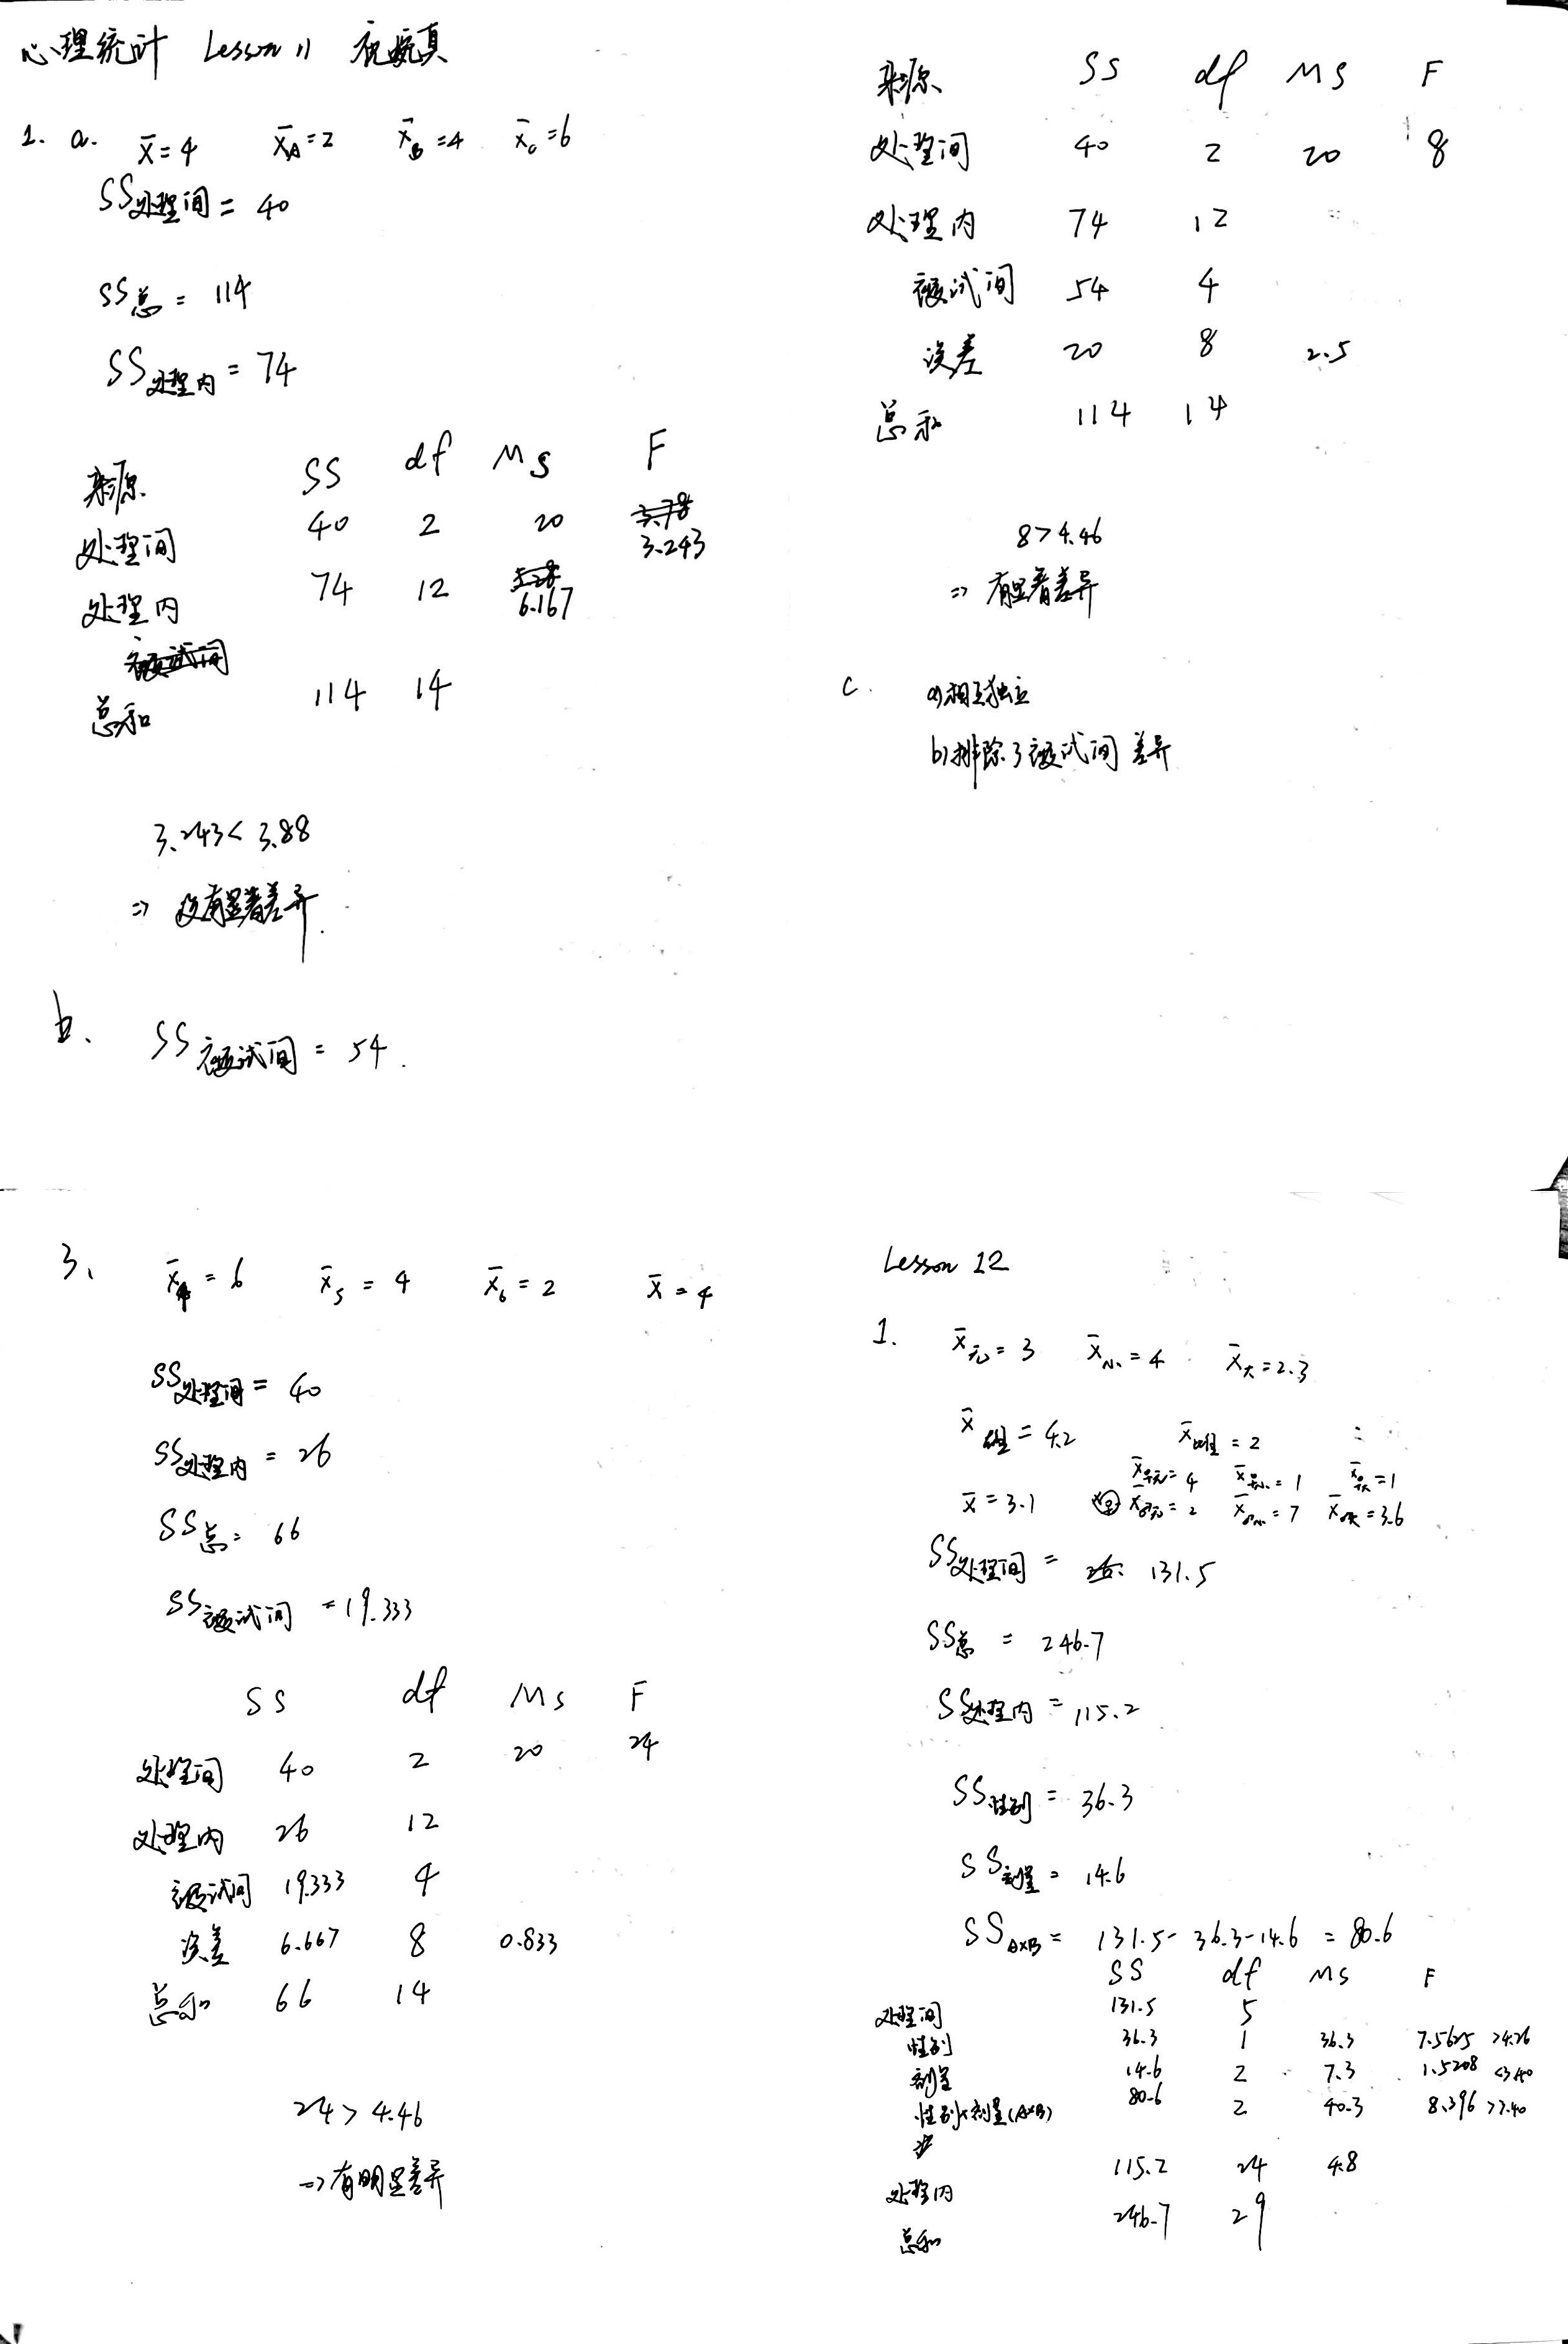 心理统计 Lesson 11
1. a. x̄=4 x̄A=2 x̄B=4 x̄C=6
SS处理间 = 40
SS总 = 114
SS处理内 = 74
来源 SS df MS F
处理间 40 2 20 3.243
处理内 74 12 6.167
总和 114 14
3.243 < 3.88
⇒ 没有显着差异.
b. SS被试间 = 54.
来源 SS df MS F
处理间 40 2 20 8
处理内 74 12
被试间 54 4
误差 20 8 2.5
总和 114 14
8 > 4.46
⇒ 有显着差异
c. a)相互独立
b)排除了被试间差异
3、 x̄4 = 6 x̄5 = 4 x̄6 = 2 x̄ = 4
SS处理间 = 40
SS处理内 = 26
SS总 = 66
SS被试间 = 19.333
SS df MS F
处理间 40 2 20 24
处理内 26 12
被试间 19.333 4
误差 6.667 8 0.833
总和 66 14
24 > 4.46
⇒ 有明显差异
Lesson 12
1. x̄无 = 3 x̄小 = 4 x̄大 = 2.3
x̄雄 = 4.2 x̄雌 = 2
x̄♀无 = 4 x̄♀小 = 1 x̄♀大 = 1
x̄ = 3.1 x̄♂无 = 2 x̄♂小 = 7 x̄♂大 = 3.6
SS处理间 = 131.5
SS总 = 246.7
SS处理内 = 115.2
SS性别 = 36.3
SS剂量 = 14.6
SSA×B = 131.5 - 36.3 - 14.6 = 80.6
SS df MS F
处理间 131.5 5
性别 36.3 1 36.3 7.5625 >4.26
剂量 14.6 2 7.3 1.5208 <3.40
性别×剂量(A×B) 80.6 2 40.3 8.396 >3.40
处理内 115.2 24 4.8
总和 246.7 29